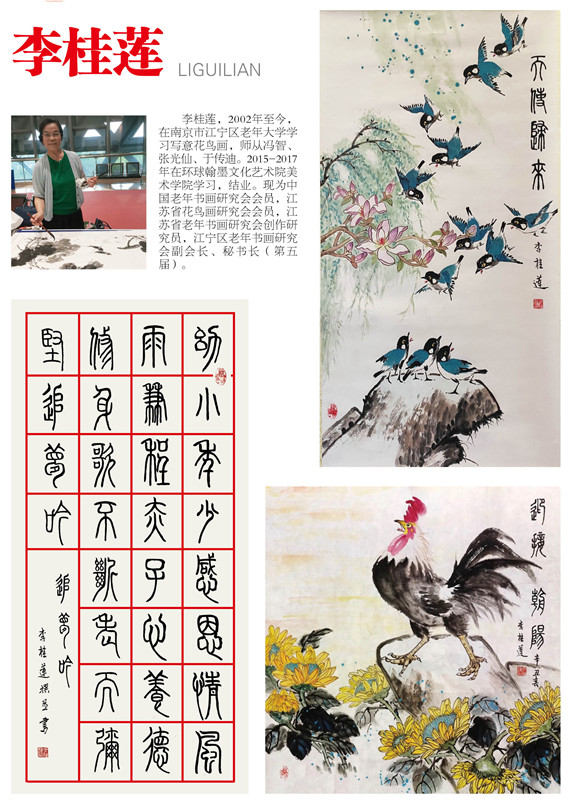 李桂莲 LIGUILIAN
李桂莲，2002年至今，
在南京市江宁区老年大学学
习写意花鸟画，师从冯智、
张光仙、于传迪。2015-2017
年在环球翰墨文化艺术院美
术学院学习，结业。现为中
国老年书画研究会会员，江
苏省花鸟画研究会会员，江
苏省老年书画研究会创作研
究员，江宁区老年书画研究
会副会长、秘书长（第五
届）。
天使歸來
李桂蓮
幼小年少感恩情風
雨兼程赤子心養德
修身歌不斷老而彌
堅追夢吟
追夢吟
李桂蓮撰并書
迎接朝陽
李桂蓮
辛丑春